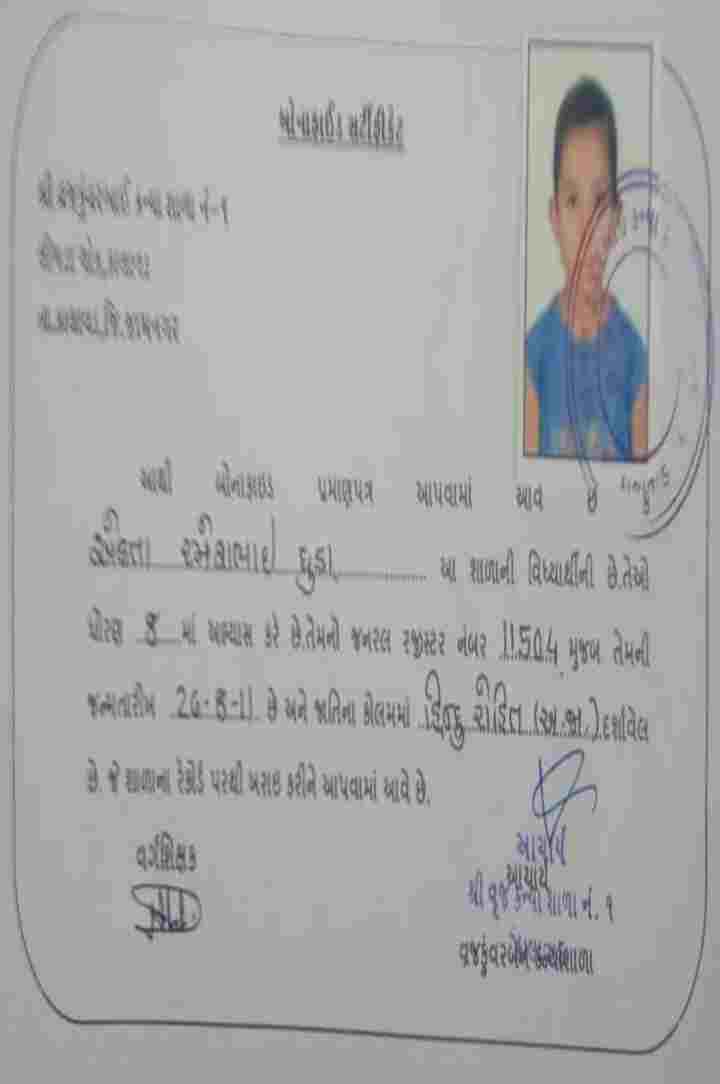 બોનાફાઈડ સર્ટીફીકેટ
શ્રી વ્રજકુંવરબાઈ કન્યા શાળા નં-૧
ચોક,કાલાવડ
તા.કાલાવડ,જિ.જામનગર
આથી બોનાફાઇડ પ્રમાણપત્ર આપવામાં આવે છે કે
એકતા રમેશભાઇ ધુડા આ શાળાની વિધ્યાર્થીની છે.તેઓ
ધોરણ 8 માં અભ્યાસ કરે છે.તેમનો જનરલ રજીસ્ટર નંબર 11504 મુજબ તેમની
જન્મતારીખ 26-8-11 છે અને જાતિના કોલમમાં હિન્દુ રોહિત (અ.જા.) દર્શાવેલ
છે. જે શાળાના રેકોર્ડ પરથી ખરાઇ કરીને આપવામાં આવે છે.
વર્ગશિક્ષક
આચાર્ય
આચાર્ય
શ્રી વૃજ કન્યા શાળા નં. ૧
વ્રજકુંવરબેન કન્યાશાળા